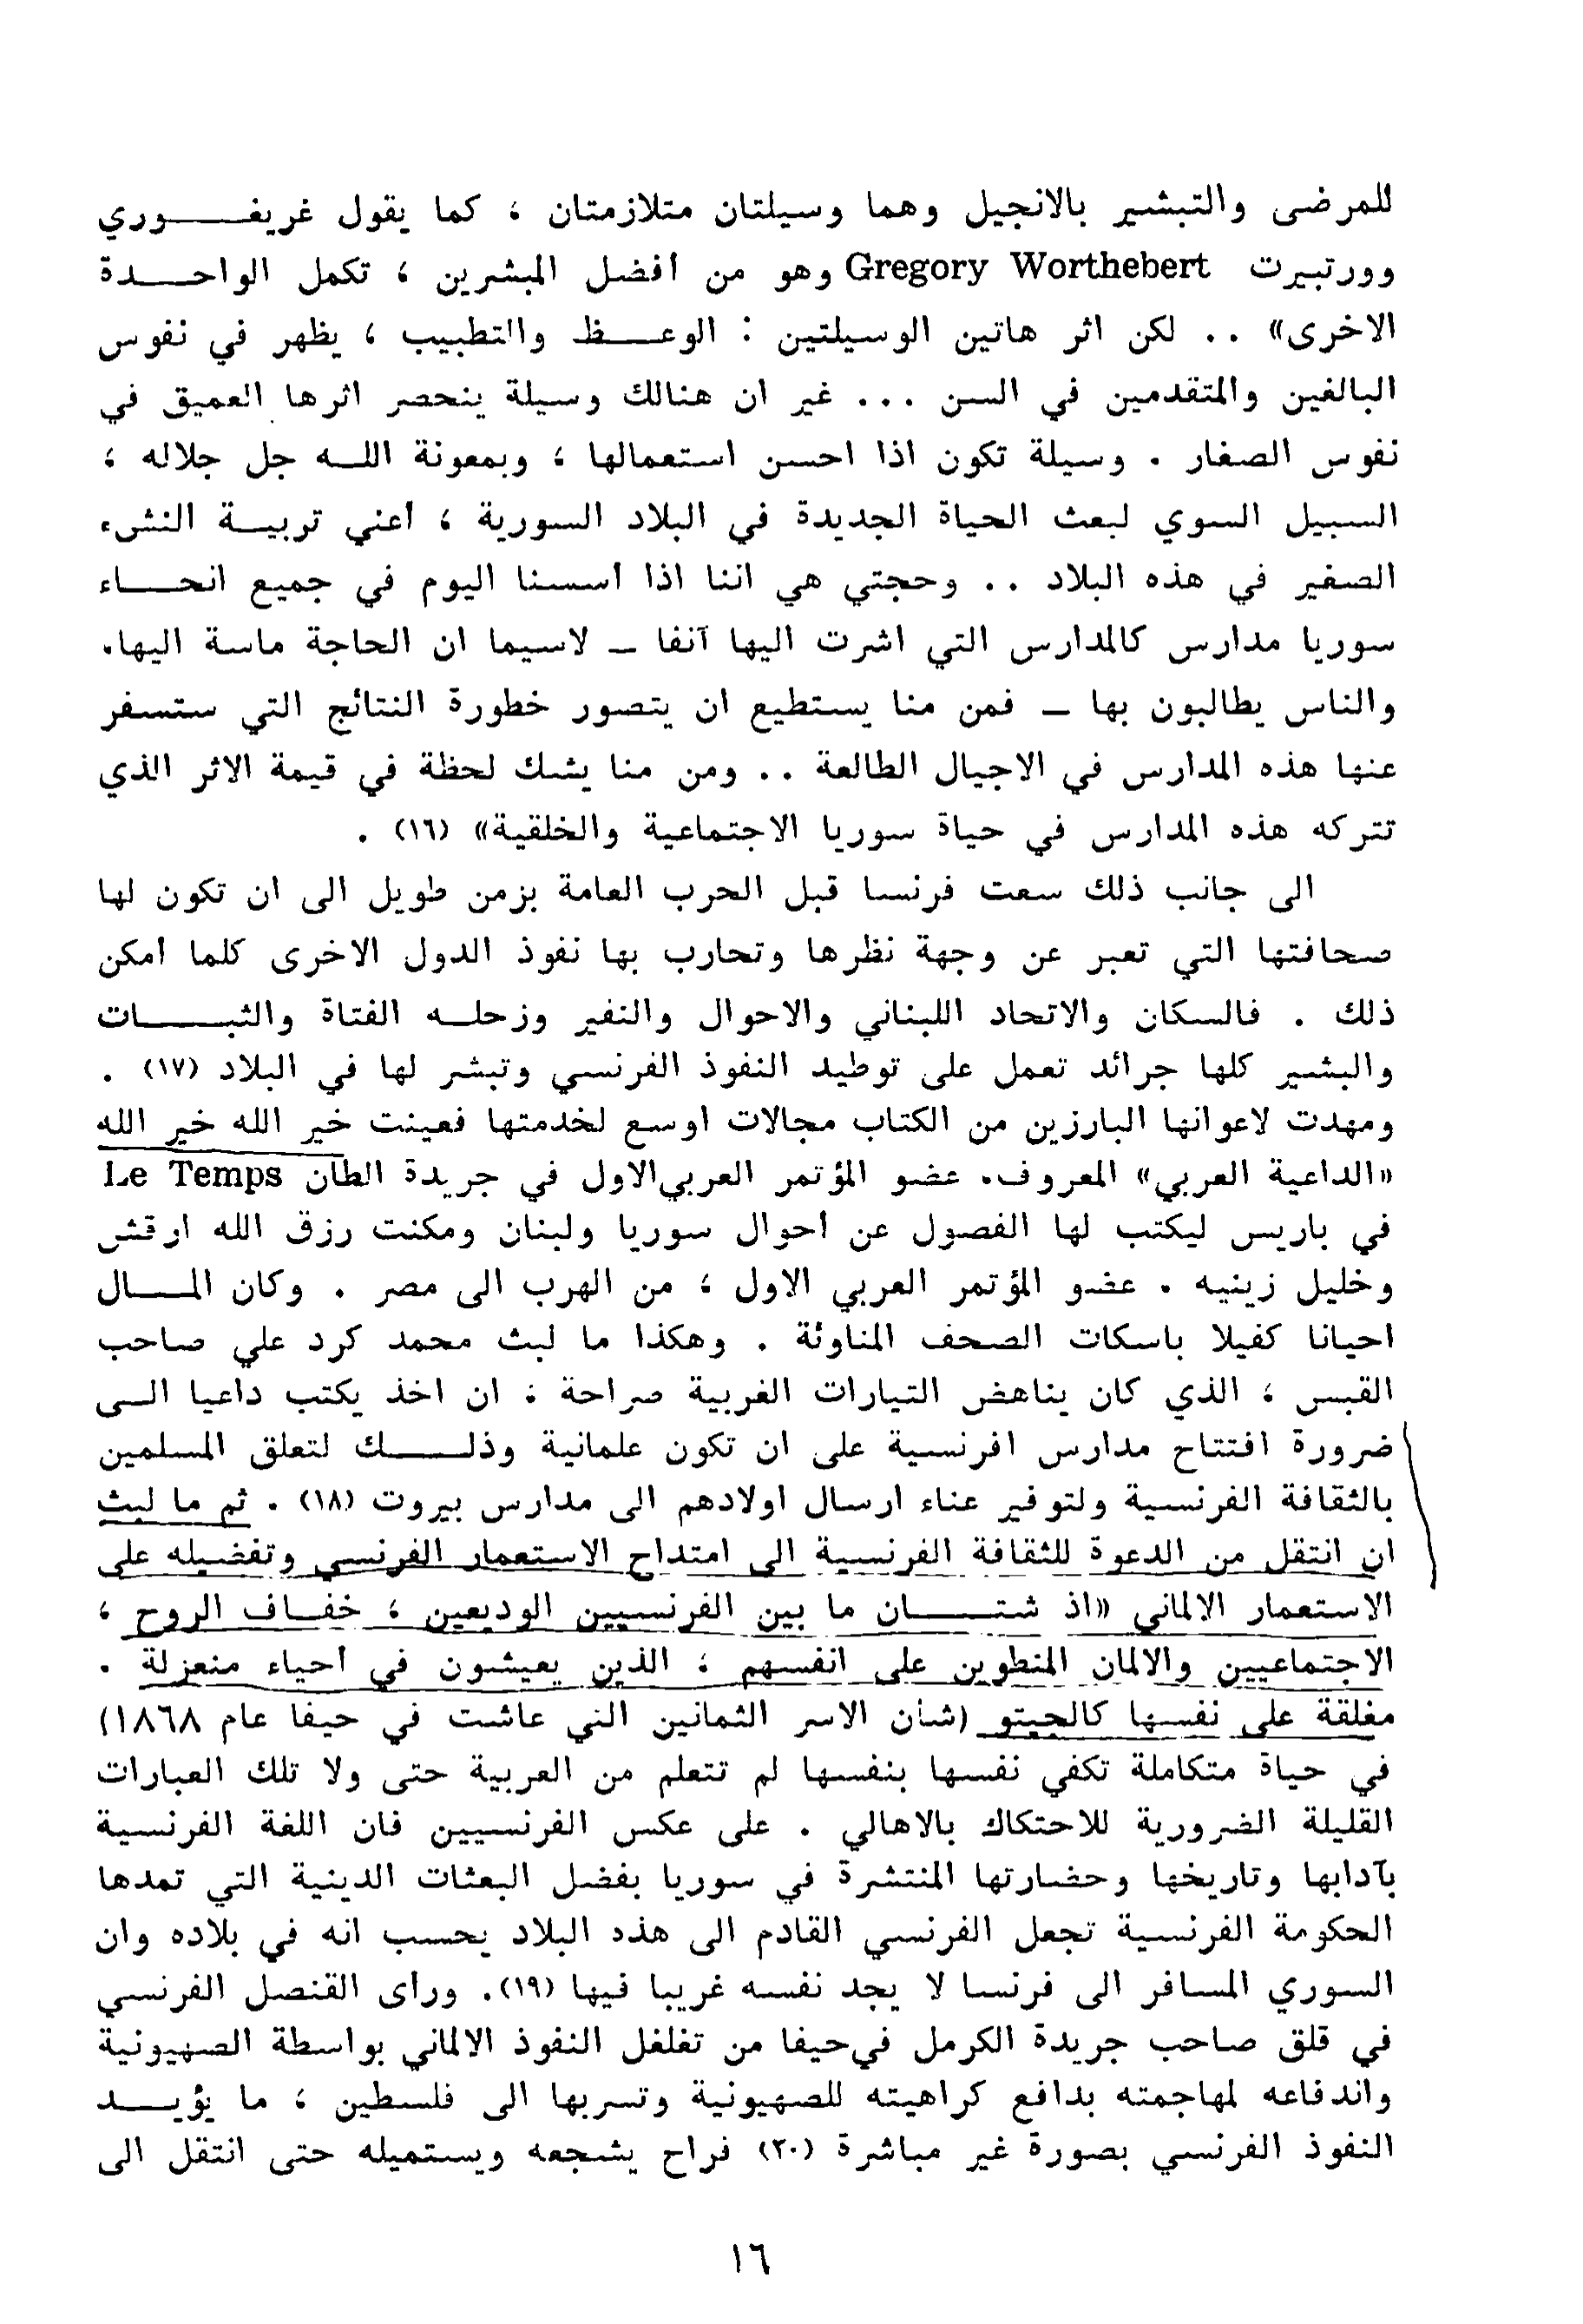 للمرضى والتبشير بالانجيل وهما وسيلتان متلازمتان ، كما يقول غريغوري
وورتبيرت Gregory Worthebert وهو من أفضل المبشرين ، تكمل الواحدة
الاخرى» .. لكن اثر هاتين الوسيلتين : الوعظ والتطبيب ، يظهر في نفوس
البالغين والمتقدمين في السن ... غير ان هنالك وسيلة ينحصر اثرها العميق في
نفوس الصغار . وسيلة تكون اذا احسن استعمالها ، وبمعونة الله جل جلاله ،
السبيل السوي لبعث الحياة الجديدة في البلاد السورية ، أعني تربية النشء
الصغير في هذه البلاد .. وحجتي هي اننا اذا أسسنا اليوم في جميع انحاء
سوريا مدارس كالمدارس التي اشرت اليها آنفا – لاسيما ان الحاجة ماسة اليها.
والناس يطالبون بها – فمن منا يستطيع ان يتصور خطورة النتائج التي ستسفر
عنها هذه المدارس في الاجيال الطالعة .. ومن منا يشك لحظة في قيمة الاثر الذي
تتركه هذه المدارس في حياة سوريا الاجتماعية والخلقية» (١٦) .
الى جانب ذلك سعت فرنسا قبل الحرب العامة بزمن طويل الى ان تكون لها
صحافتها التي تعبر عن وجهة نظرها وتحارب بها نفوذ الدول الاخرى كلما أمكن
ذلك . فالسكان والاتحاد اللبناني والاحوال والنفير وزحله الفتاة والثبات
والبشير كلها جرائد تعمل على توطيد النفوذ الفرنسي وتبشر لها في البلاد (١٧) .
ومهدت لاعوانها البارزين من الكتاب مجالات اوسع لخدمتها فعينت خير الله خير الله
«الداعية العربي» المعروف. عضو المؤتمر العربي الاول في جريدة الطان Le Temps
في باريس ليكتب لها الفصول عن أحوال سوريا ولبنان ومكنت رزق الله ارقش
وخليل زينيه . عضو المؤتمر العربي الاول ، من الهرب الى مصر . وكان المال
احيانا كفيلا باسكات الصحف المناوئة . وهكذا ما لبث محمد كرد علي صاحب
القبس ، الذي كان يناهض التيارات الغربية صراحة ، ان اخذ يكتب داعيا الى
ضرورة افتتاح مدارس افرنسية على ان تكون علمانية وذلك لتعلق المسلمين
بالثقافة الفرنسية ولتوفير عناء ارسال اولادهم الى مدارس بيروت (١٨) . ثم ما لبث
ان انتقل من الدعوة للثقافة الفرنسية الى امتداح الاستعمار الفرنسي وتفضيله على
الاستعمار الالماني «اذ شتان ما بين الفرنسيين الوديعين ، خفاف الروح ،
الاجتماعيين والالمان المنطوين على انفسهم ، الذين يعيشون في أحياء منعزلة .
مغلقة على نفسها كالجيتو (شأن الاسر الثمانين التي عاشت في حيفا عام ١٨٦٨)
في حياة متكاملة تكفي نفسها بنفسها لم تتعلم من العربية حتى ولا تلك العبارات
القليلة الضرورية للاحتكاك بالاهالي . على عكس الفرنسيين فان اللغة الفرنسية
بآدابها وتاريخها وحضارتها المنتشرة في سوريا بفضل البعثات الدينية التي تمدها
الحكومة الفرنسية تجعل الفرنسي القادم الى هذه البلاد يحسب انه في بلاده وان
السوري المسافر الى فرنسا لا يجد نفسه غريبا فيها (١٩). ورأى القنصل الفرنسي
في قلق صاحب جريدة الكرمل في حيفا من تغلغل النفوذ الالماني بواسطة الصهيونية
واندفاعه لمهاجمته بدافع كراهيته للصهيونية وتسربها الى فلسطين ، ما يؤيد
النفوذ الفرنسي بصورة غير مباشرة (٢٠) فراح يشجعه ويستميله حتى انتقل الى
١٦